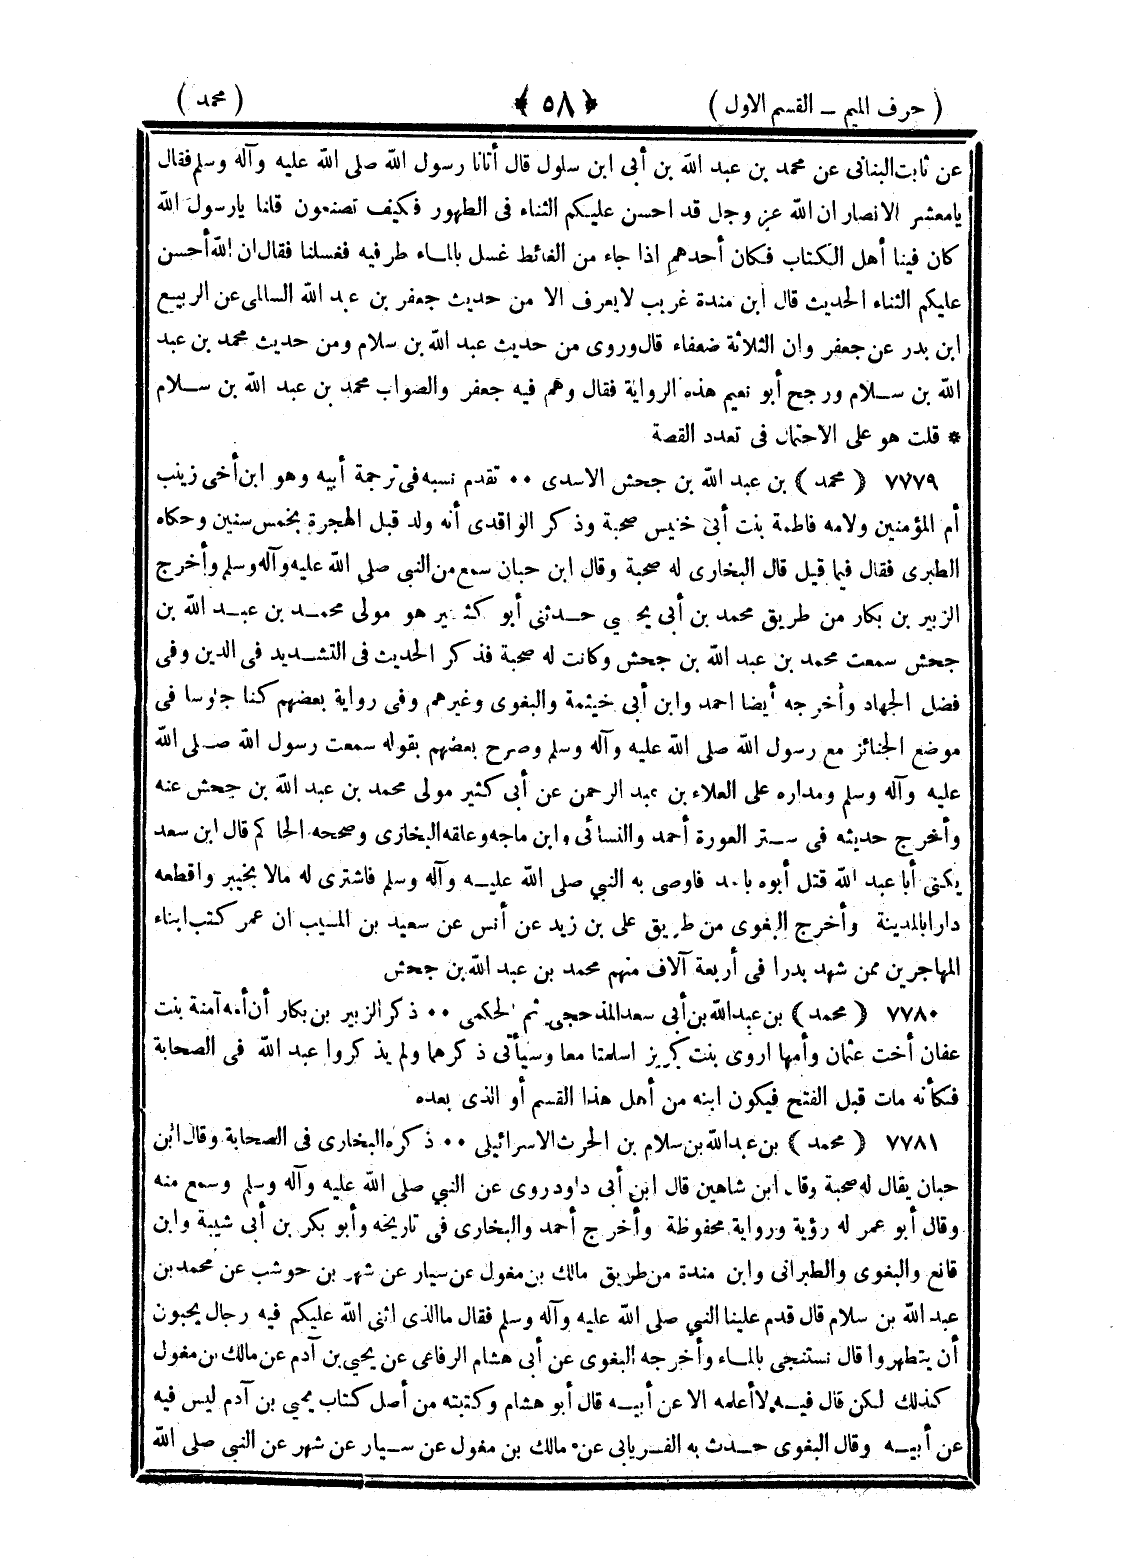 ( حرف الميم ــ القسم الاول ) ﴿ ٥٨ ﴾ ( محمد )
عن ثابت البنانى عن محمد بن عبد الله بن أبى ابن سلول قال أتانا رسول الله صلى الله عليه وآله وسلم فقال
يا معشر الانصار ان الله عز وجل قد احسن عليكم الثناء فى الطهور فكيف تصنعون قلنا يا رسول الله
كان فينا أهل الكتاب فكان أحدهم اذا جاء من الغائط غسل بالمــاء طرفيه فغسلنا فقال ان الله أحسن
عليكم الثناء الحديث قال ابن مندة غريب لا يعرف الا من حديث جعفر بن عبد الله السالمى عن الربيع
ابن بدر عن جعفر وان الثلاثة ضعفاء قال وروى من حديث عبد الله بن سلام ومن حديث محمد بن عبد
الله بن ســلام ورجح أبو نعيم هذه الرواية فقال وهم فيه جعفر والصواب محمد بن عبد الله بن ســلام
* قلت هو على الاحتمال فى تعدد القصة
٧٧٧٩ ( محمد ) بن عبد الله بن جحش الاسدى ٠٠ تقدم نسبه فى ترجمة أبيه وهو ابن أخى زينب
أم المؤمنين ولامه فاطمة بنت أبى خنيس صحبة وذكر الواقدى أنه ولد قبل الهجرة بخمس سنين وحكاه
الطبرى فقال فيما قيل قال البخارى له صحبة وقال ابن حبان سمع من النبي صلى الله عليه وآله وسلم وأخرج
الزبير بن بكار من طريق محمد بن أبى يحيي حــدثنى أبو كثير هو مولى محمــد بن عبــد الله بن
جحش سمعت محمد بن عبد الله بن جحش وكانت له صحبة فذكر الحديث فى التشــديد فى الدين وفى
فضل الجهاد وأخرجه أيضا احمد وابن أبى خيثمة والبغوى وغيرهم وفى رواية بعضهم كنا جلوسا فى
موضع الجنائز مع رسول الله صلى الله عليه وآله وسلم وصرح بعضهم بقوله سمعت رسول الله صــلى الله
عليه وآله وسلم ومداره على العلاء بن عبد الرحمن عن أبى كثير مولى محمد بن عبد الله بن جحش عنه
وأخرج حديثه فى ســتر العورة أحمد والنسائى وابن ماجه وعلقه البخارى وصححه الحاكم قال ابن سعد
يكنى أبا عبد الله قتل أبوه باحد فاوصى به النبي صلى الله عليــه وآله وسلم فاشترى له مالا بخيبر واقطعه
دارا بالمدينة وأخرج البغوى من طريق على بن زيد عن أنس عن سعيد بن المسيب ان عمر كتب ابناء
المهاجرين ممن شهد بدرا فى أربعة آلاف منهم محمد بن عبد الله بن جحش
٧٧٨٠ ( محمد ) بن عبد الله بن أبى سعد المذحجى ثم الحكمى ٠٠ ذكر الزبير بن بكار أن أمه آمنة بنت
عفان أخت عثمان وأمها اروى بنت كريز اسلمتا معا وسيأتى ذكرهما ولم يذكروا عبد الله فى الصحابة
فكأنه مات قبل الفتح فيكون ابنه من أهل هذا القسم أو الذى بعده
٧٧٨١ ( محمد ) بن عبد الله بن سلام بن الحرث الاسرائيلى ٠٠ ذكره البخارى فى الصحابة وقال ابن
حبان يقال له صحبة وقال ابن شاهين قال ابن أبى داود روى عن النبي صلى الله عليه وآله وسلم وسمع منه
وقال أبو عمر له رؤية ورواية محفوظة وأخرج أحمد والبخارى فى تاريخه وأبو بكر بن أبى شيبة وابن
قانع والبغوى والطبرانى وابن مندة من طريق مالك بن مغول عن سيار عن شهر بن حوشب عن محمد بن
عبد الله بن سلام قال قدم علينا النبي صلى الله عليه وآله وسلم فقال ما الذى اثنى الله عليكم فيه رجال يحبون
أن يتطهروا قال نستنجى بالمــاء وأخرجه البغوى عن أبى هشام الرفاعى عن يحيي بن آدم عن مالك بن مغول
كذلك لكن قال فيــه لا أعلمه الا عن أبيــه قال أبو هشام وكتبته من أصل كتاب يحيي بن آدم ليس فيه
عن أبيــه وقال البغوى حــدث به الفــريابى عن مالك بن مغول عن ســيار عن شهر عن النبي صلى الله